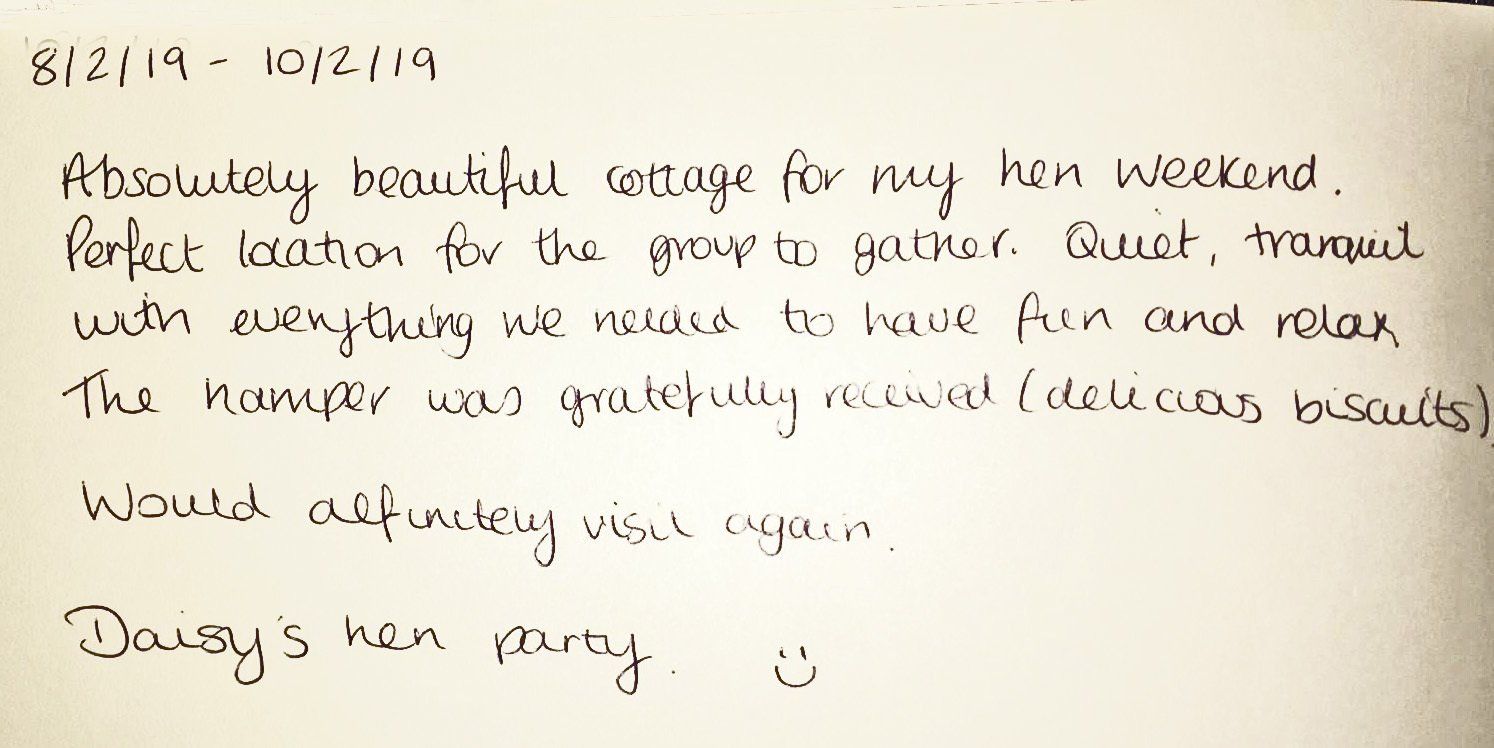 8/2/19 - 10/2/19
Absolutely beautiful cottage for my hen weekend.
Perfect location for the group to gather. Quiet, tranquil
with everything we needed to have fun and relax
The hamper was gratefully received (delicious biscuits)
Would definitely visit again.
Daisy's hen party. :)